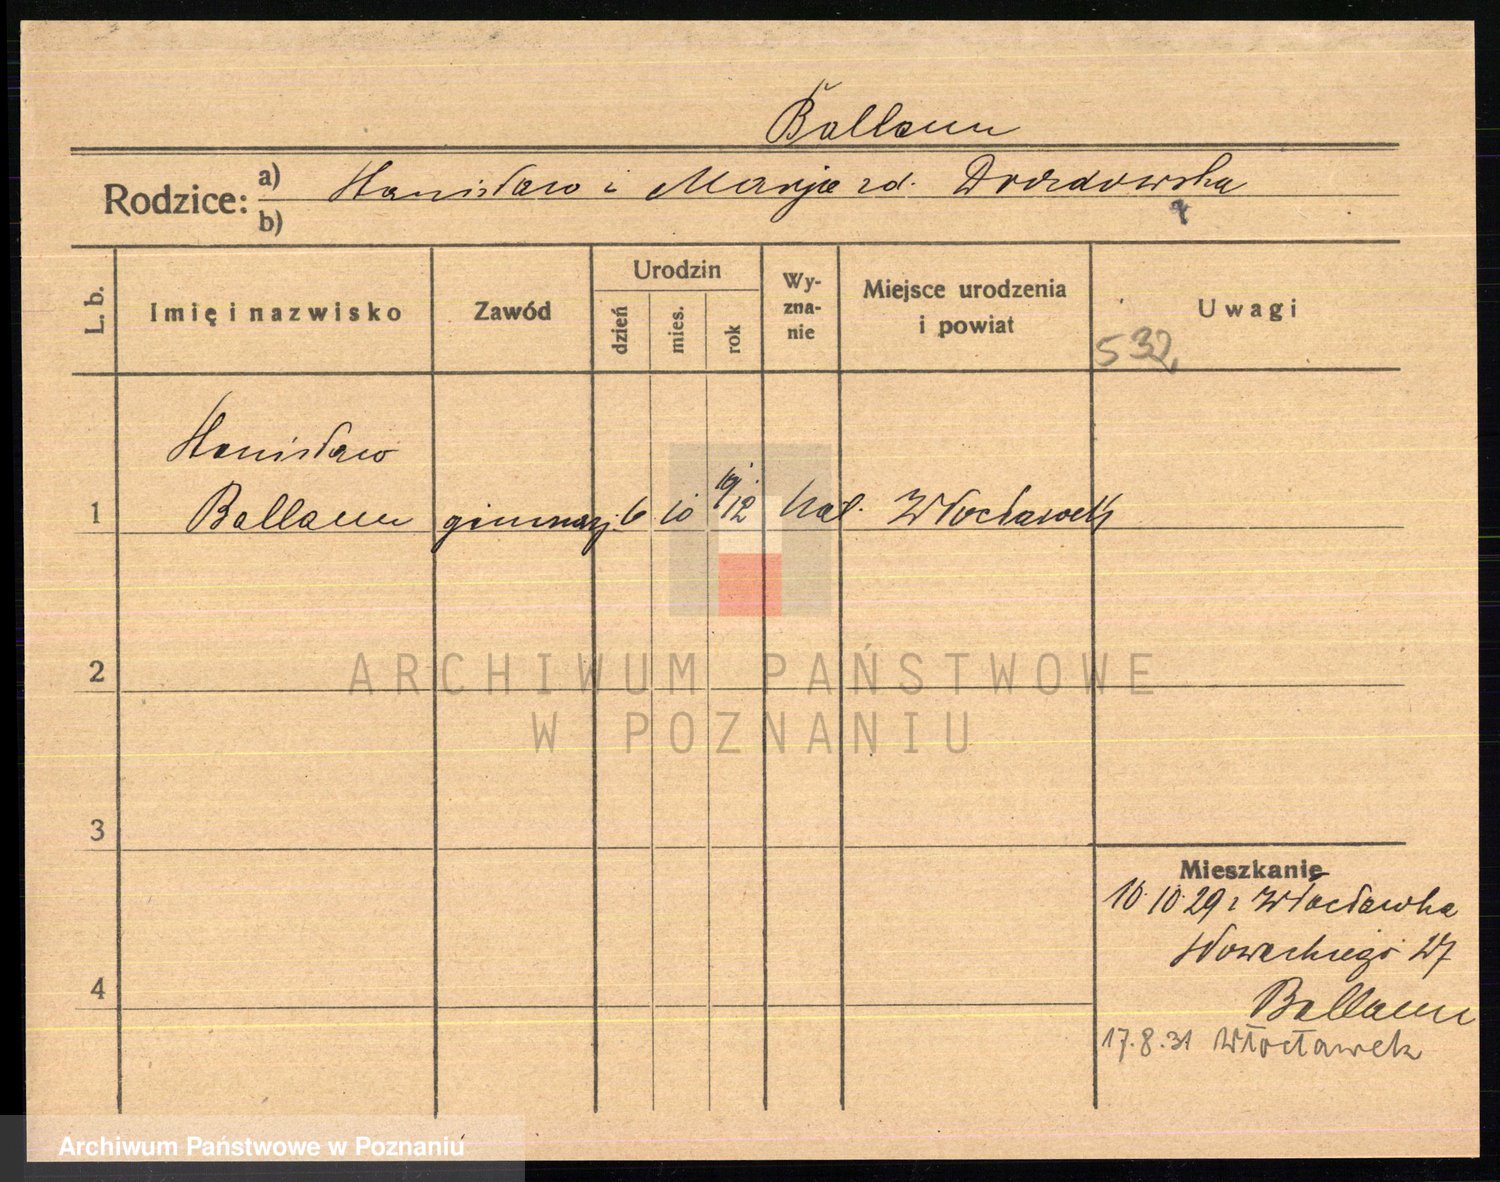 Ballaun
Rodzice: a) Stanisław i Marja zd. Drozdowska
b)
L. b. Imię i nazwisko Zawód Urodzin dzień mies. rok Wy-zna-nie Miejsce urodzenia i powiat Uwagi
532
Stanisław
1 Ballaun gimnazj. 6 10 1912 kat. Włocławek
2
ARCHIWUM PAŃSTWOWE
W POZNANIU
3
Mieszkanie
10.10.29 z Włocławka
27
4
Ballaun
17.8.31 Włocławek
Archiwum Państwowe w Poznaniu